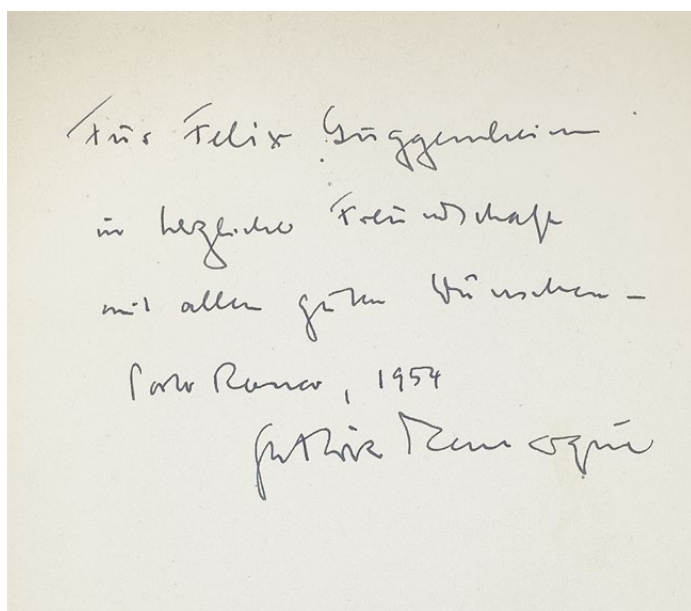 Für Felix Guggenheim
in herzlicher Freundschaft
mit allen guten Wünschen –
Porto Ronco, 1954
Remarque